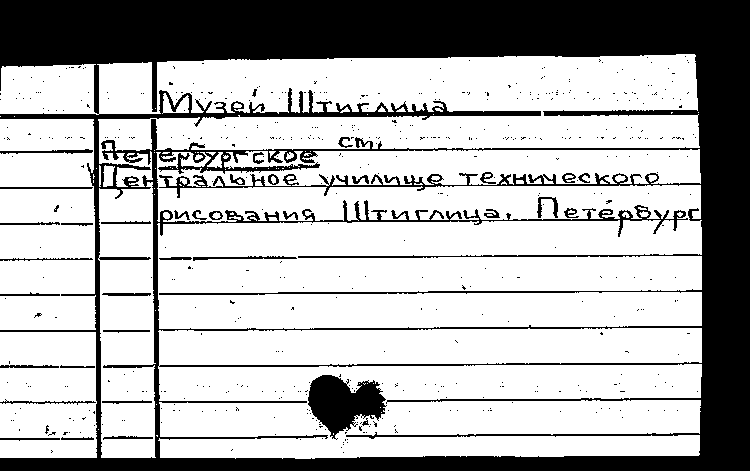 Музей Штиглица
см.
Петербургское
Центральное училище технического
рисования Штиглица. Петербург